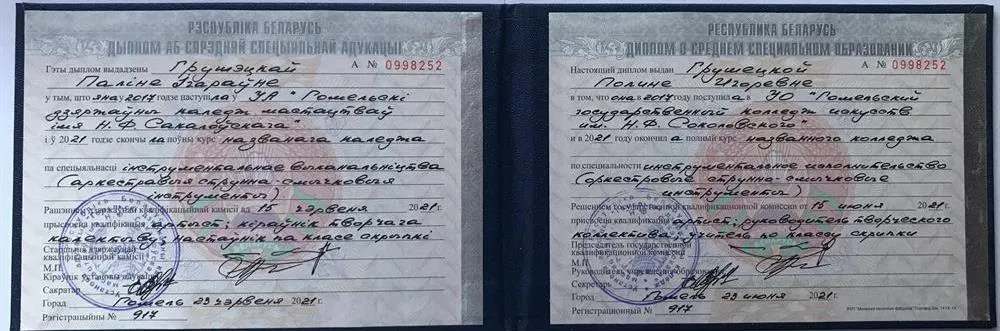 РЭСПУБЛІКА БЕЛАРУСЬ
ДЫПЛОМ АБ СЯРЭДНЯЙ СПЕЦЫЯЛЬНАЙ АДУКАЦЫІ
Гэты дыплом выдадзены Грушэцкай А № 0998252
Паліне Ігараўне
у тым, што яна у 2017 годзе паступіла ў УА "Гомельскі
дзяржаўны каледж мастацтваў
імя Н.Ф. Сакалоўскага"
і ў 2021 годзе скончыла поўны курс названага каледжа
па спецыяльнасці інструментальнае выканальніцтва
(аркестравыя струнна-смычковыя
інструменты)
Рашэннем дзяржаўнай кваліфікацыйнай камісіі ад 15 чэрвеня 2021 г.
прысвоена кваліфікацыя артыст; кіраўнік творчага
калектыву; настаўнік па класе скрыпкі
Старшыня дзяржаўнай
кваліфікацыйнай камісіі
М.П.
Кіраўнік установы адукацыі
Сакратар
Горад Гомель 23 чэрвеня 2021 г.
Рэгістрацыйны № 917
РЕСПУБЛИКА БЕЛАРУСЬ
ДИПЛОМ О СРЕДНЕМ СПЕЦИАЛЬНОМ ОБРАЗОВАНИИ
Настоящий диплом выдан Грушецкой А № 0998252
Полине Игоревне
в том, что она в 2017 году поступила в УО "Гомельский
государственный колледж искусств
им. Н.Ф. Соколовского"
и в 2021 году окончила полный курс названного колледжа
по специальности инструментальное исполнительство
(оркестровые струнно-смычковые
инструменты)
Решением государственной квалификационной комиссии от 15 июня 2021 г.
присвоена квалификация артист; руководитель творческого
коллектива; учитель по классу скрипки
Председатель государственной
квалификационной комиссии
М.П.
Руководитель учреждения образования
Секретарь
Город Гомель 23 июня 2021 г.
Регистрационный № 917